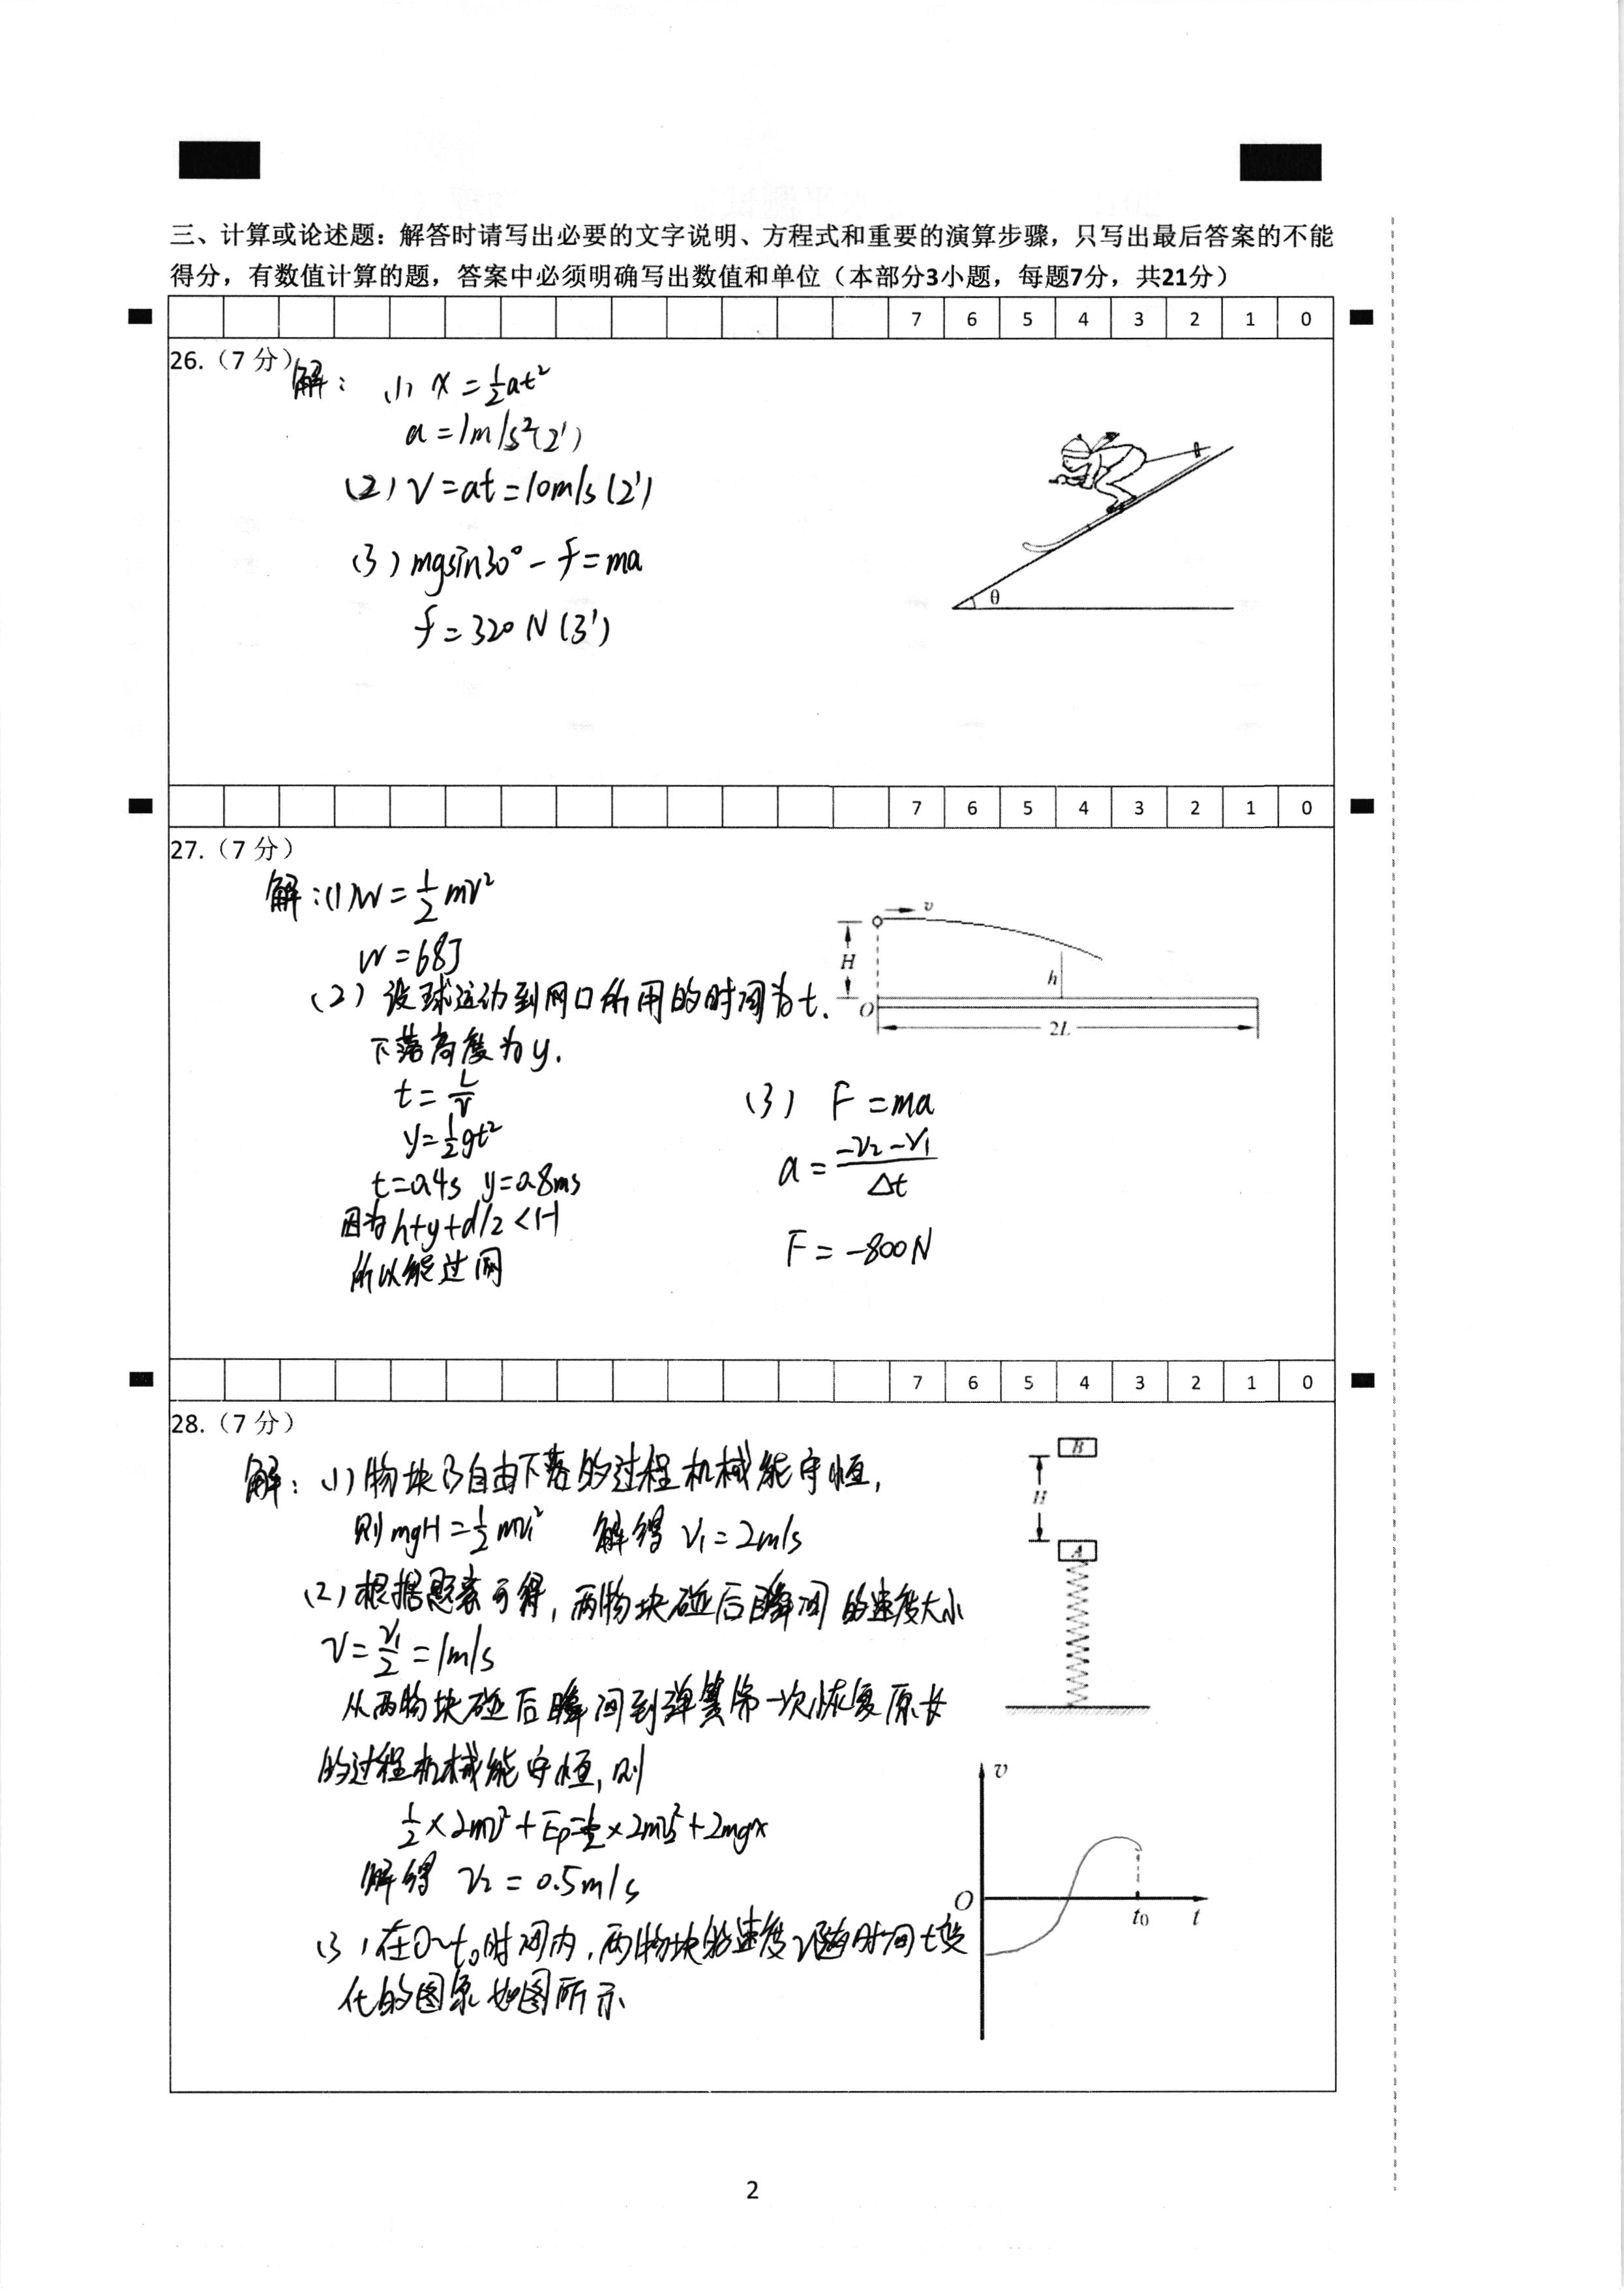 三、计算或论述题：解答时请写出必要的文字说明、方程式和重要的演算步骤，只写出最后答案的不能
得分，有数值计算的题，答案中必须明确写出数值和单位（本部分3小题，每题7分，共21分）
7 6 5 4 3 2 1 0
26.（7 分）
解： (1) x = ½at²
a = 1m/s² (2')
(2) v = at = 10m/s (2')
(3) mgsin30° - f = ma
f = 320 N (3')
θ
7 6 5 4 3 2 1 0
27.（7 分）
解：(1) W = ½mv²
W = 68J
(2) 设球运动到网口所用的时间为t.
下落高度为y.
t = L/v
y = ½gt²
t=0.4s y=0.8ms
因为h+y+d/2<H
所以能过网
v
H
h
O
2L
(3) F = ma
a = (-v₂-v₁)/Δt
F = -800N
7 6 5 4 3 2 1 0
28.（7 分）
解：(1) 物块B自由下落的过程机械能守恒，
则mgH = ½mv₁² 解得 v₁ = 2m/s
(2) 根据题意可得，两物块碰后瞬间的速度大小
v = v₁/2 = 1m/s
从两物块碰后瞬间到弹簧第一次恢复原长
的过程机械能守恒，则
½×2mv²+Ep=½×2mv₂²+2mgx
解得 v₂ = 0.5m/s
(3) 在0~t₀时间内，两物块的速度v随时间t变
化的图象如图所示
B
H
A
v
O
t₀
t
2